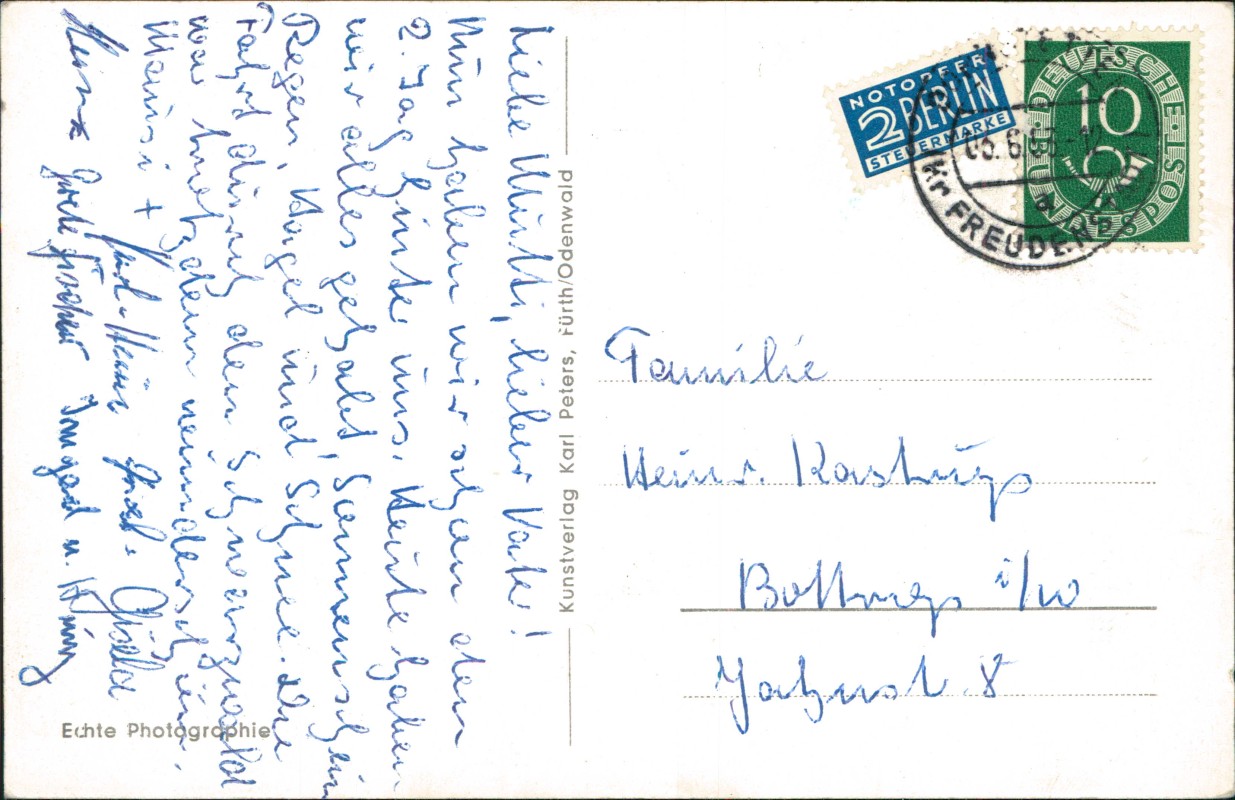 Liebe Mutti, lieber Vater!
Nun haben wir schon den
2. Tag hinter uns. Heute haben
wir alles gehabt, Sonnenschein
Regen, Hagel und Schnee. Die
Fahrt durch den Schwarzwald
war trotzdem wunderschön.
Mausi +
Karl-Heinz Gisela
Heinz Grete Fischer Irmgard u.
Kunstverlag Karl Peters, Fürth/Odenwald
Echte Photographie
NOTOPFER
2 BERLIN
STEUERMARKE
DEUTSCHE POST
10
05.6.53-12
Kr. FREUDENST
Familie
Heinr. Kastrup
Bottrop i/W
Jahnst. 8